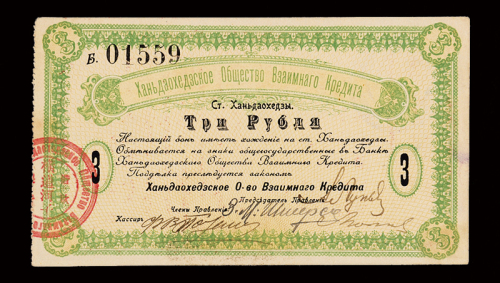 Б. 01559
Ханьдаохедзское Общество Взаимнаго Кредита
Ст. Ханьдаохедзы.
Три Рубля
3
3
Настоящiй бонъ имѣетъ хожденiе на ст. Ханьдаохедзы.
Обмѣнивается на знаки общегосударственные въ Банкѣ
Ханьдаохедзскаго Общества Взаимнаго Кредита.
Поддѣлка преслѣдуется закономъ
Ханьдаохедзское О-во Взаимнаго Кредита
Предсѣдатель Правленiя
Члены Правленiя
Кассиръ